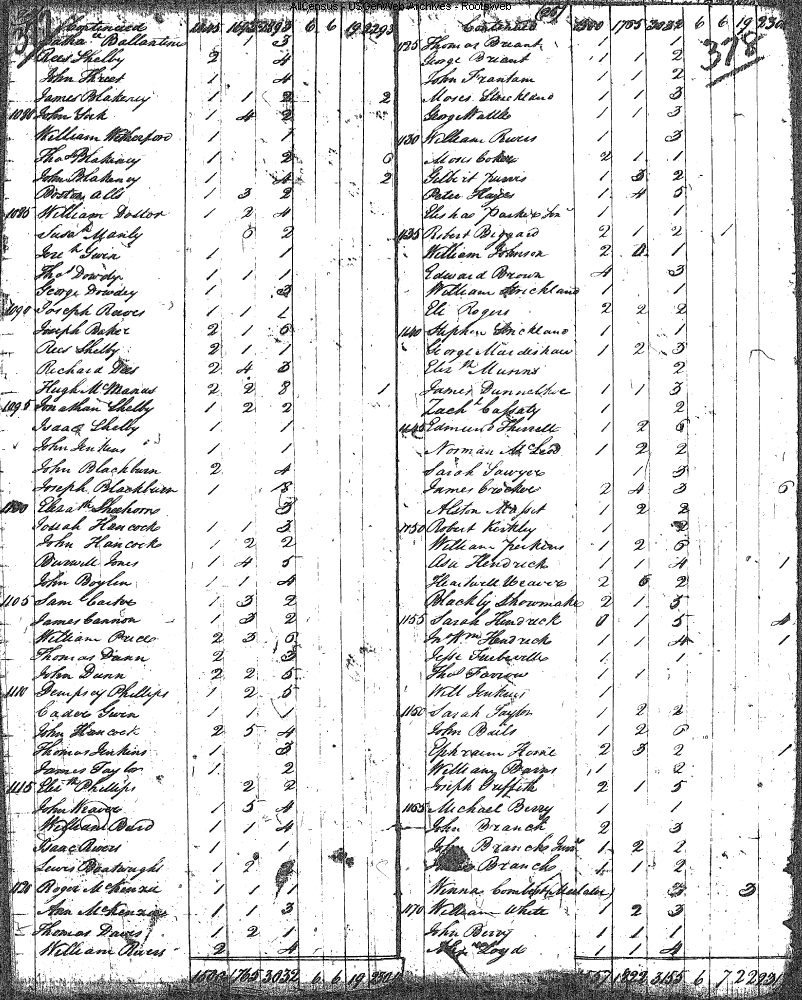 AllCensus - USGenWeb Archives - Rootsweb
Continued
Ballentine 1 3
Rees Shelby 2 4
John Threet 1 4
James Blakeney 1 1 2 2
1080 John York 1 4 2
William Wetherford 1 1
Thos Blakeney 1 2 6
John Blakeney 1 4 2
Boston Alls 1 3 2
1085 William Doster 1 2 4
Susah Manly 2
Gwin 1 1
Thos Dowdy 1 1
George Dowdey 1 3
1090 Joseph Reaves 1 1 1
Joseph Baker 2 1 6
Rees Shelby 2 1 1
Richard Dees 2 4 3
Hugh McManas 2 2 8 1
1095 Jonathan Shelby 1 2 2
Isaac Shelby 1 1
John Jenkins 1 1
John Blackburn 2 4
Joseph Blackburn 1 8
1100 Elizath 3
Josiah Hancock 1 1 3
John Hancock 1 2 2
Burwell Jones 1 4 5
John Boylin 1 1 4
1105 Sam Carter 1 3 2
James Cannon 1 3 2
William Price 2 3 6
Thomas Dunn 2 3
John Dunn 2 2 5
1110 Dempsey Phillips 1 2 5
Cader Gwin 1 1 1
John Hancock 2 5 4
Thomas Jenkins 1 3
James Taylor 1 2
1115 Elisth Phillips 2 2
John Weaver 1 5 4
William Burd 1 1 4
Isaac Rivers 1 1
Lewis Boatwright 1 2
1120 Roger McKenzie 1 1 1
Ann McKenzie 1 1 3
Thomas Davis 1 2 1
William Rivers 2 4
1500 1765 3032 6 6 19 230
Continued (25) 1500 1765 3032 6 6 19 230
378
1125 Thomas Briant 1 1 1
George Briant 1 1 2
John Frantam 1 1 2
Moses Strickland 1 1 3
George Wattle 1 1 3
1130 William Rivers 1 3
Moses Coker 2 1 1
Gilbert Jurvis 1 3 2
Peter Hayes 1 4 5
Elishas Parker Junr 1 1
1135 Robert Biggard 2 1 2 1
William Johnson 2 1
Edward Brown 4 3
William Strickland 1 1
Eli Rogers 2 2 2
1140 Stephen Strickland 1 1
George Mardishaw 1 2 3
Elisth Munns 2
James Dunnelhoe 1 1 3
Zacht Cassaty 1 2
1145 Edmund Therrell 1 2 6
Norman McLeod 1 2 2
Sarah Sawyer 1 3
James Crocker 2 4 3 6
Alston 1 2 2
1150 Robert Kirkley 1 2
William Jenkins 1 2 6
Asa Hendrick 1 1 4 1
Heartwell Weaver 2 6 2
Blackly Showmake 2 1 3
1155 Sarah Hendrick 0 1 5 4
Jn Wm Hendrick 1 1 4 1
Jesse Tuberville 1 1 1
Thos Farrow 1 1
Will Jenkins 1 1
1160 Sarah Taylor 1 2 2
John Bails 1 2 6
Ephraim Horne 2 3 2 1
William Barns 1 2
Joseph Griffith 2 1 5
1165 Michael Berry 1 1
John Branch 2 3
John Branch Junr 1 2 2
Branch 1 1 2
Winna 3
1170 William White 1 2 3
John Berry 1 1 1
Loyd 1 1 4
1557 1822 3155 6 7 22 231